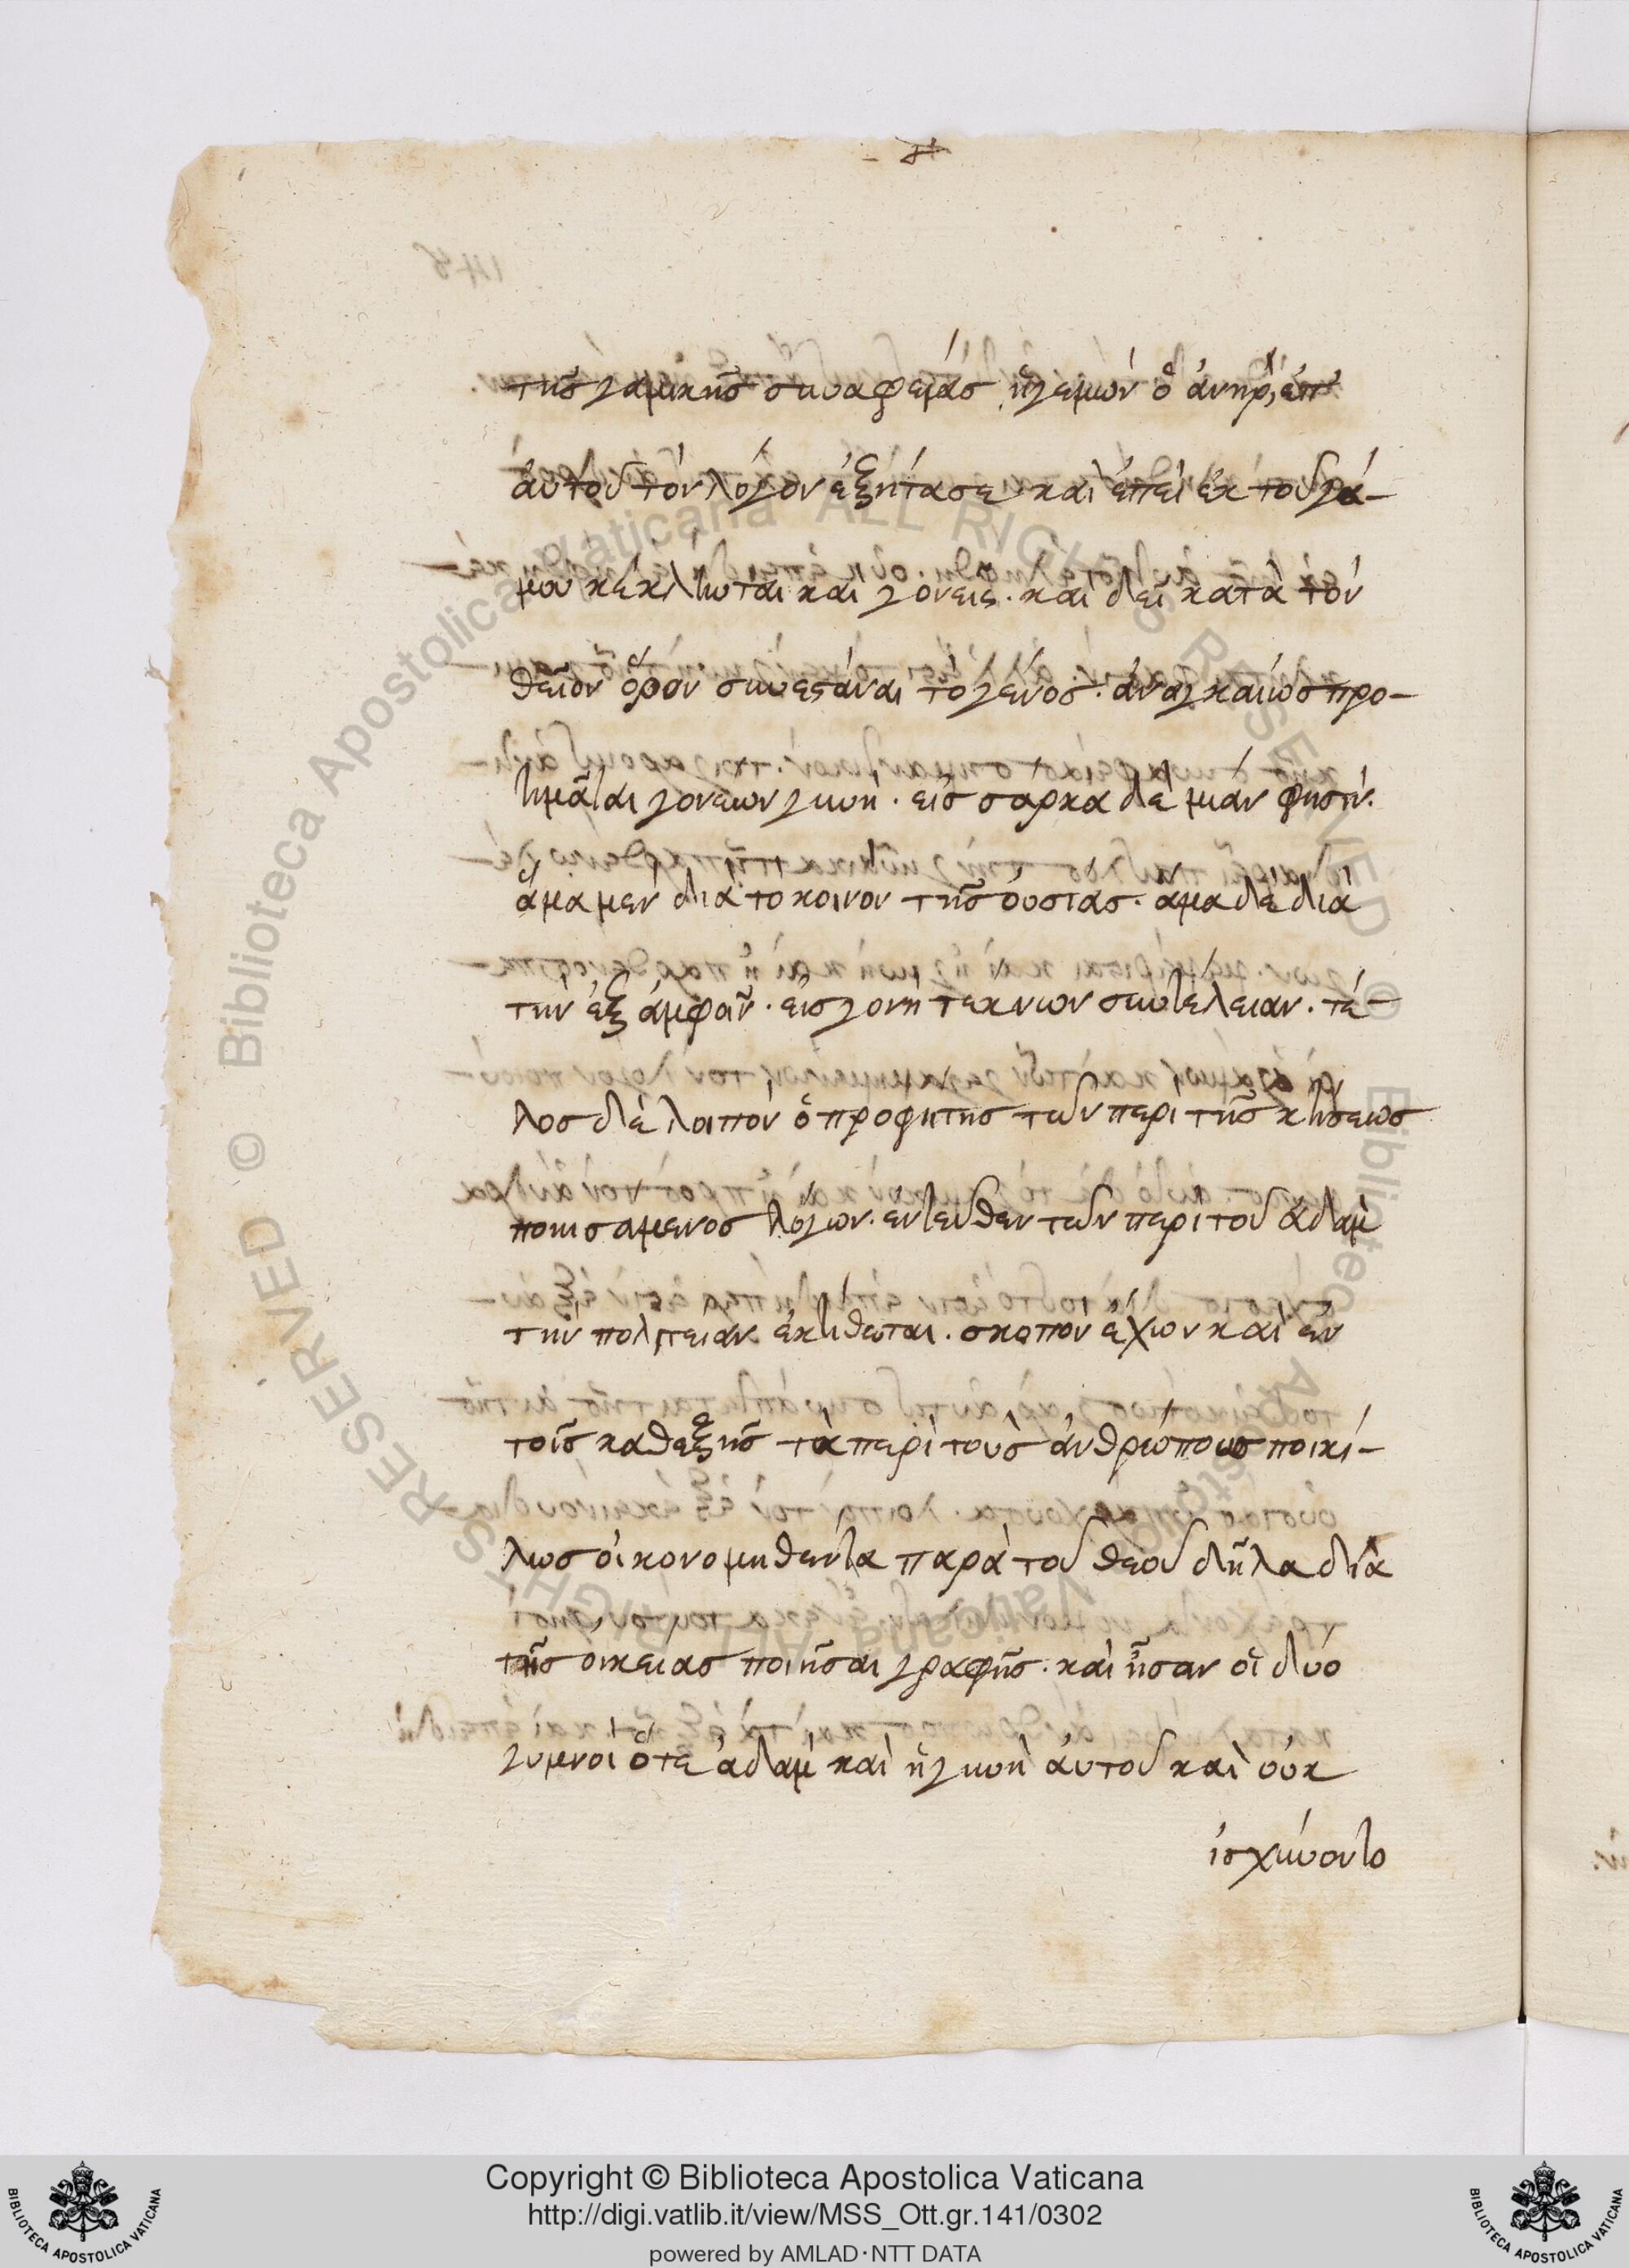 τῆς γαμικῆς συναφείας ἡγεμών ὁ ἀνηρ, ἐπ'
αὐτοῦ τὸν λόγον ἐξήτασε καὶ ἐπεὶ ἐκ τοῦ γά-
μου κέκληται καὶ γονεῖς. καὶ δεῖ κατὰ τὸν
θεῖον ὅρον συνεστάναι τὸ γένος. ἀναγκαίως προ-
τιμᾶται γονέων γυνή. εἰς σάρκα δὲ μίαν φησίν.
ἅμα μὲν διὰ το κοινον τῆς οὐσίας. ἅμα δὲ διὰ
τὴν ἐξ ἀμφοῖν. εἰς γονὴ τεκνων συντέλειαν. τέ-
λος δὲ λοιπὸν ὁ προφητης τῶν περὶ τῆς κτίσεως
ποιησαμενος λόγων. εντεῦθεν τῶν περὶ τοῦ ἀδὰμ
τὴν πολιτείαν ἐκτίθεται. σκοπον ἔχων καὶ ἐν
τοῖς καθεξῆς τὰ περὶ τοὺς ἀνθρώπους ποικί-
λως οἰκονομηθεντα παρὰ τοῦ θεοῦ δῆλα διὰ
τῆς οικειας ποιῆσαι γραφῆς. καὶ ἦσαν οἱ δύο
γυμνοι ὅτε ἀδὰμ καὶ ἡ γυνὴ αὐτοῦ καὶ οὐκ
ἰσχύνοντο
Copyright © Biblioteca Apostolica Vaticana
http://digi.vatlib.it/view/MSS_Ott.gr.141/0302
powered by AMLAD·NTT DATA
BIBLIOTECA APOSTOLICA VATICANA
BIBLIOTECA APOSTOLICA VATICANA
© Biblioteca Apostolica Vaticana ALL RIGHTS RESERVED © Biblioteca Apostolica Vaticana ALL RIGHTS RESERVED